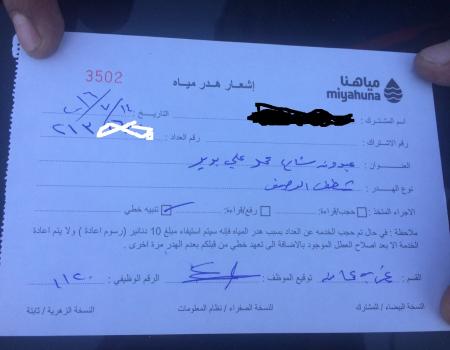 مياهنا
miyahuna
3502
إشعار هدر مياه
اسم المشترك :
التاريخ : ١٤ / ٧ / ٢٠١٦
رقم الاشتراك :
رقم العداد : ٢١٣
العنوان : عبدون شارع محمد علي بدير
نوع الهدر : شطف الرصيف
الاجراء المتخذ : حجب/قراءة: رفع/قراءة: تنبيه خطي
ملاحظة : في حال تم حجب الخدمه عن العداد بسبب هدر المياه فإنه سيتم استيفاء مبلغ 10 دنانير (رسوم اعادة ) ولا يتم اعادة
الخدمة الا بعد اصلاح العطل الموجود بالاضافة الى تعهد خطي من قبلكم بعدم الهدر مرة اخرى .
القسم : توقيع الموظف : الرقم الوظيفي : ١١٢٠
النسخة البيضاء / للمشترك النسخة الصفراء / نظام المعلومات النسخة الزهرية / ثابتة